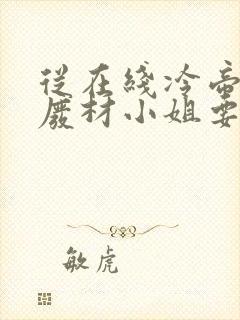 從在綫冷帝
廢材小姐要
敏虎